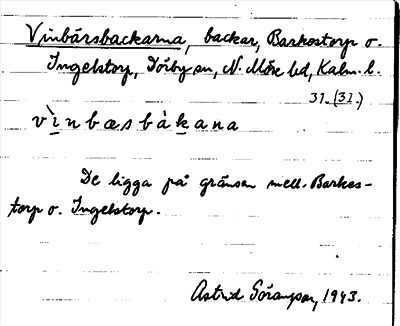 Vinbärsbackarna, backar, Barkestorp o.
Ingelstorp, Dörby sn, N. Möre hd, Kalm. l.
31. (31.)
vìnbæsbàkana
De ligga på gränsen mell. Barkes-
torp o. Ingelstorp.
Astrid Göransson, 1943.